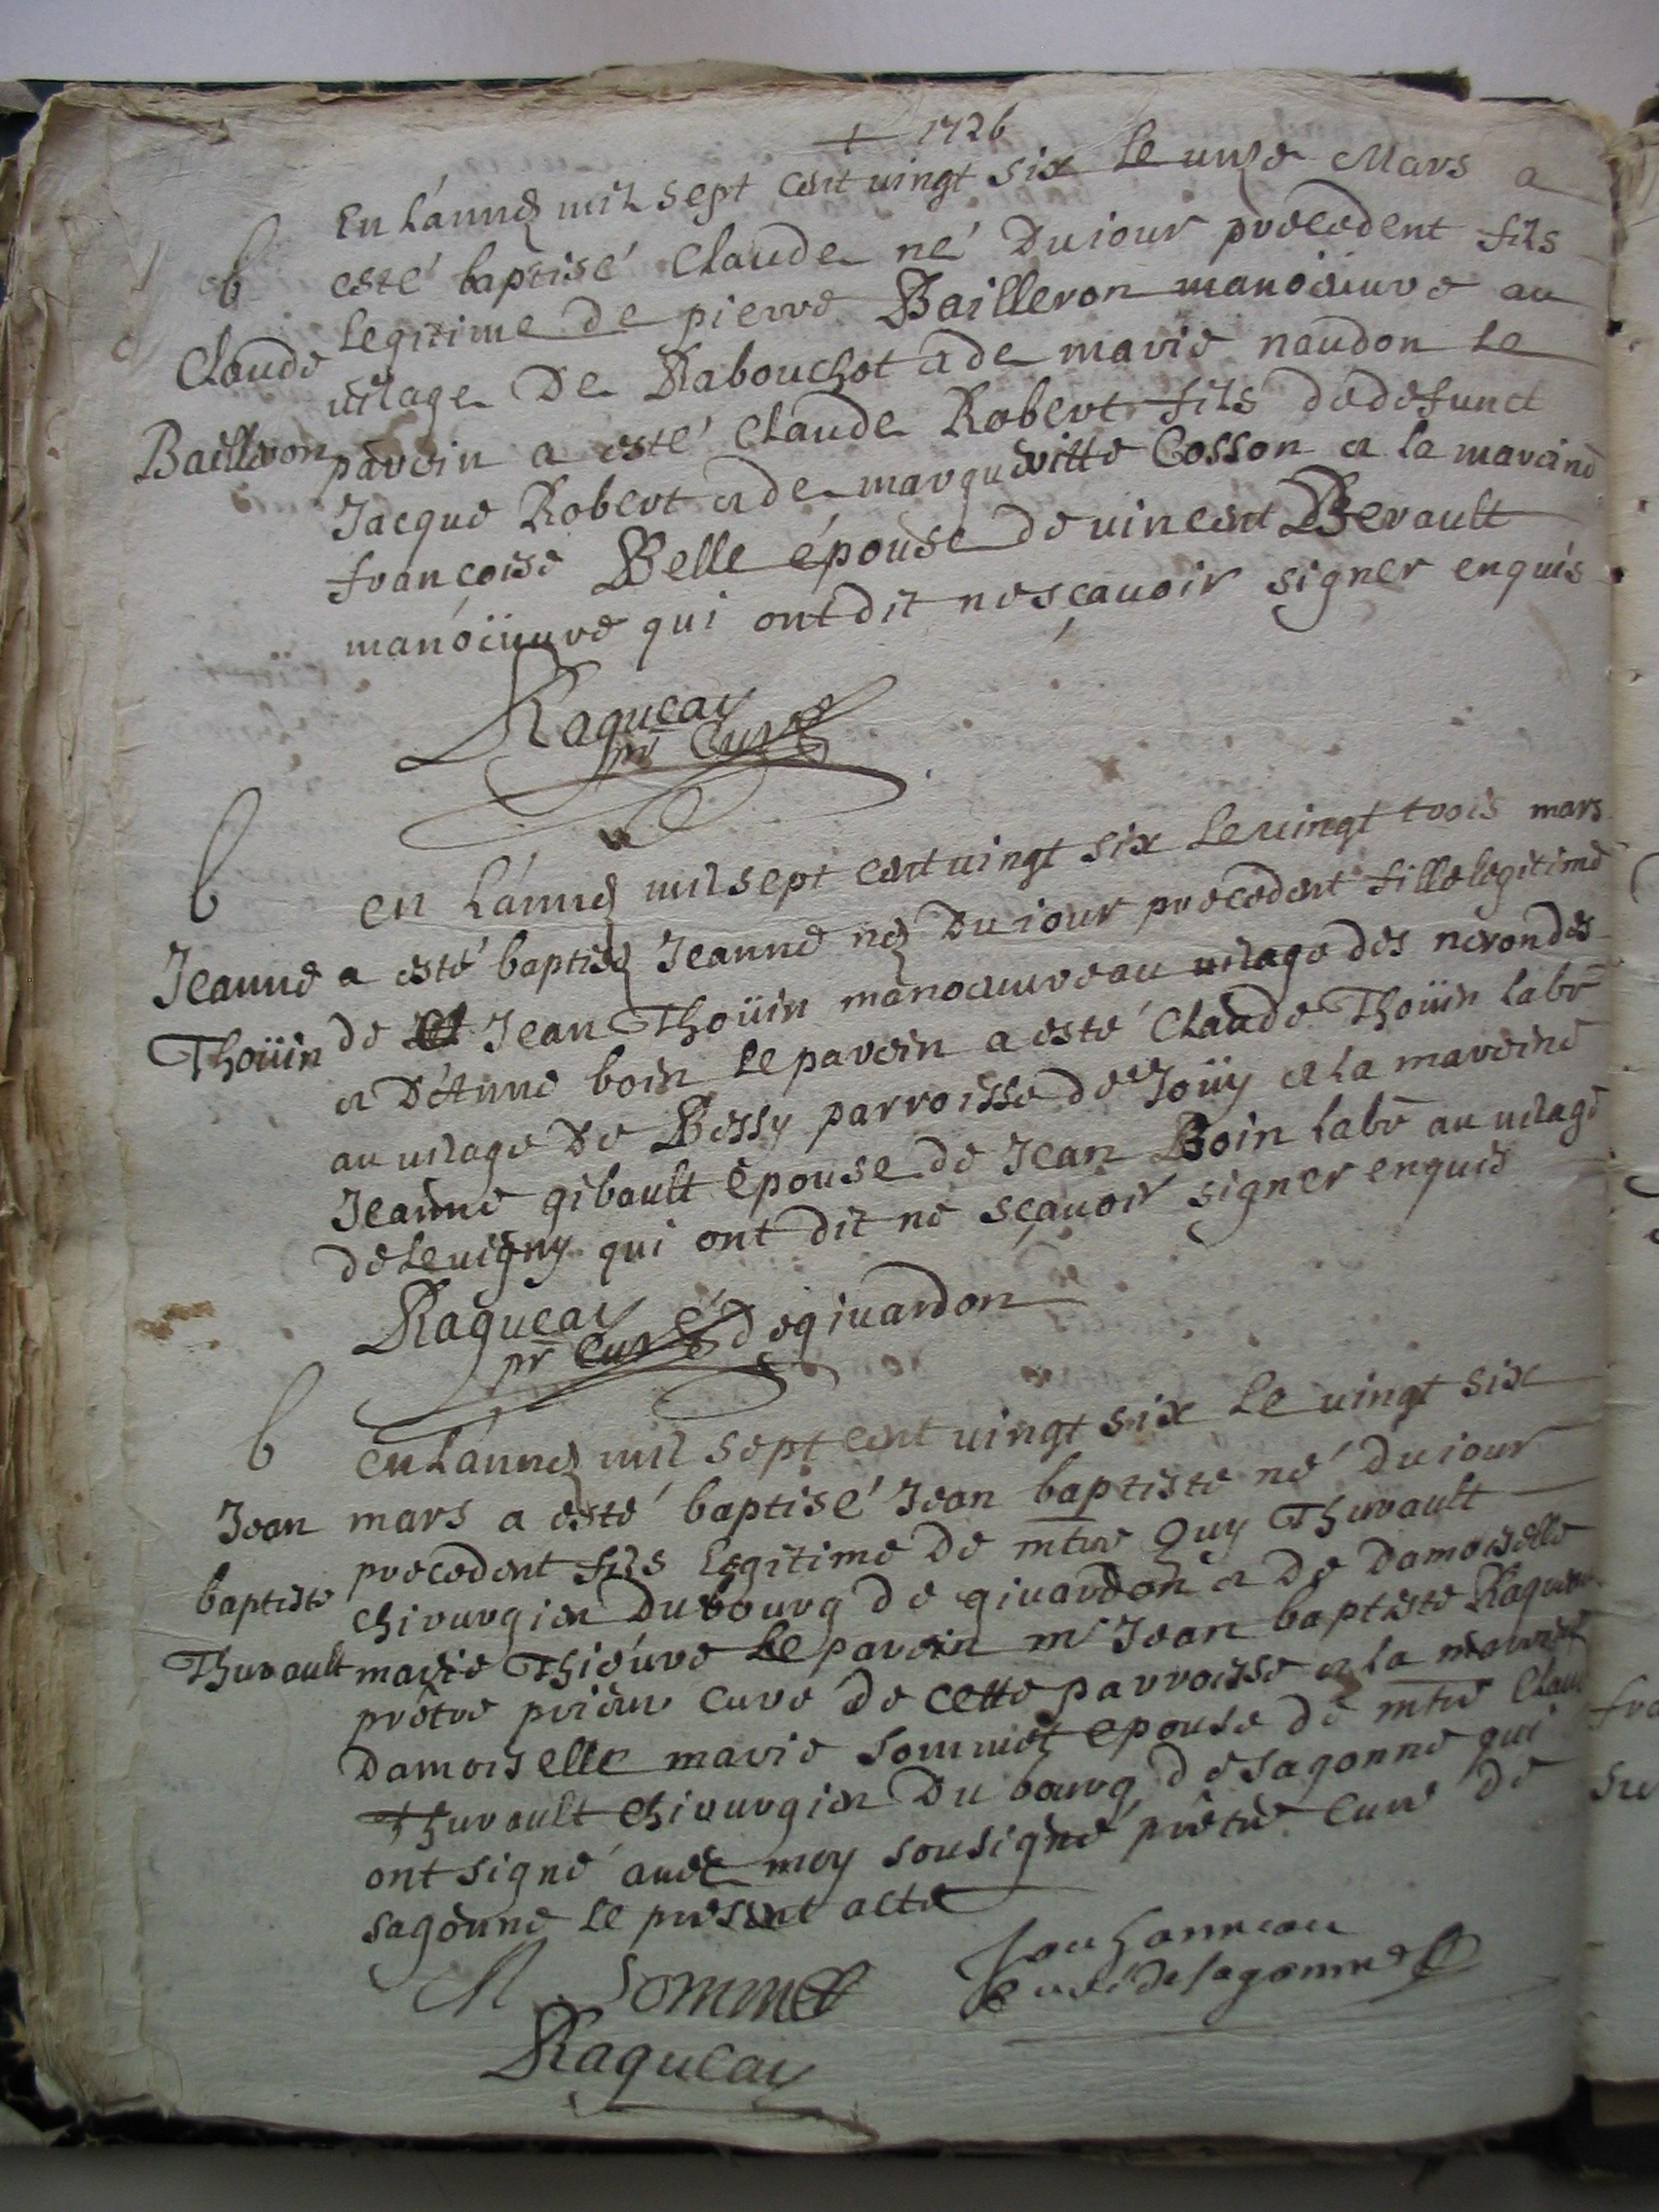 + 1726
En l'année mil sept cent uingt six le unze Mars a
b
esté baptisé Claude né du iour precedent fils
Claude
legitime de pierre Bailleron manoeuure au
uilage de Rabouchot et de marie naudon le
Bailleron
parein a esté Claude Robert fils de defunct
Jacque Robert et de marguéritte Cosson et la mareine
françoise Belle épouse de uincent Berault
manoeuure qui ont dit ne sçauoir signer enquis
Ragueau
pr Curé
b
en l'année mil sept cent uingt six le uingt trois mars
Jeanne
a esté baptisée Jeanne née du iour precedent fille legitime
Thoüin
de Jean Thoüin manoeuure au uilage des nerondes
et d'Anne boin le parein a esté Claude Thoüin labr
au uilage de Bessy parroisse de Joüy et la mareine
Jeanne gibault épouse de Jean Boin labr au uilage
de leuigny qui ont dit ne sçauoir signer enquis
Ragueau
pr Curé de giuardon
b
en l'année mil sept cent uingt six le uingt six
Jean
mars a esté baptisé Jean baptiste né du iour
baptiste
precedent fils legitime de mtre Guy Thurault
chirurgien du bourg de giuardon et de damoiselle
Thurault
marie Thieure le parein mr Jean baptiste Ragueau
prétre prieur curé de cette parroisse et la mareine
damoiselle marie Sommet epouse de mtre Claude
Thurault chirurgien du bourg de sagonne qui
ont signé auec moy sousigné prétre curé de
sagonne le present acte
M. Sommet
Jouhanneau
Curé de sagonne
Ragueau